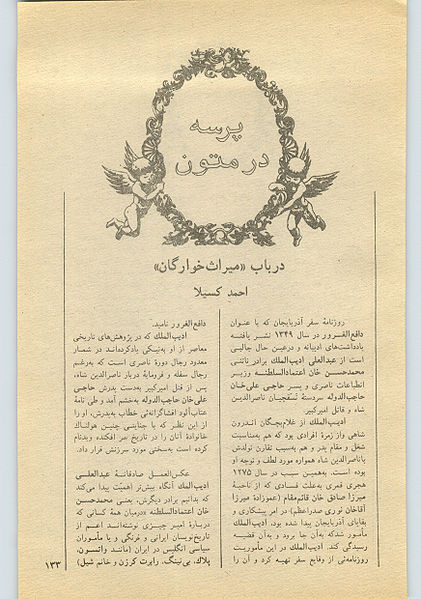 پرسه
در متون
در باب «میراث‌خوارگان»
احمد کسیلا
روزنامهٔ سفر آذربایجان که با عنوان
دافع‌الغرور در سال ۱۳۴۹ نشر یافته
یادداشت‌های ادیبانه و درعین حال جالبی
است از عبدالعلی ادیب‌الملك برادر ناتنی
محمدحسن خان اعتمادالسلطنه وزیر
انطباعات ناصری و پسر حاجی علی‌خان
حاجب‌الدوله سردستهٔ نسقچیان ناصرالدین
شاه و قاتل امیرکبیر.
ادیب‌الملك از غلام‌بچگان اندرون
شاهی واز زمرهٔ افرادی بود که هم‌به‌مناسبت
شغل و مقام پدر و هم به‌سبب تقارن تولدش
باناصرالدین شاه همواره مورد لطف و توجه او
بوده است. به‌همین سبب در سال ۱۲۷۵
هجری قمری به‌علت فسادی که از ناحیهٔ
میرزا صادق خان قائم‌مقام (عموزادهٔ میرزا
آقاخان نوری صدراعظم) در امر پیشکاری و
بقایای آذربایجان پیدا شده بود، ادیب‌الملك
مأمور شدکه به‌آن جا برود و به‌آن قضیه
رسیدگی کند. ادیب‌الملك در این مأموریت
روزنامه‌ئی از وقایع سفر تهیه کرد و آن را
دافع‌الغرور نامید.
ادیب‌الملك که در پژوهش‌های تاریخی
معاصر از او به‌نیکی یادکرده‌اند در شمار
معدود رجال دورهٔ ناصری است که به‌رغم
رجال سفله و فرومایهٔ دربار ناصرالدین شاه،
پس از قتل امیرکبیر به‌دست پدرش حاجی
علی خان حاجب‌الدوله به‌خشم آمد و طی نامهٔ
عتاب‌آلود افشاگرانه‌ئی خطاب به‌پدرش، او را
از این نظر که با جنایتی چنین هولناك
خانوادهٔ آنان را در تاریخ سر افکنده وبدنام
کرده است به‌سختی مورد سرزنش قرار داد.
عکس‌العمل صادقانهٔ عبدالعلی
ادیب‌الملك آنگاه بیش‌تر اهمیّت پیدا می‌کند
که بدانیم برادر دیگرش، یعنی محمدحسن
خان اعتمادالسلطنه «درمیان همهٔ کسانی که
دربارهٔ امیر چیزی نوشته‌اند اعم از
تاریخ‌نویسان ایرانی و فرنگی و یا مأموران
سیاسی انگلیس در ایران (مانند واتسون،
پلاك، بی‌نینگ، رابرت کرزن و خانم شیل)
۱۳۳